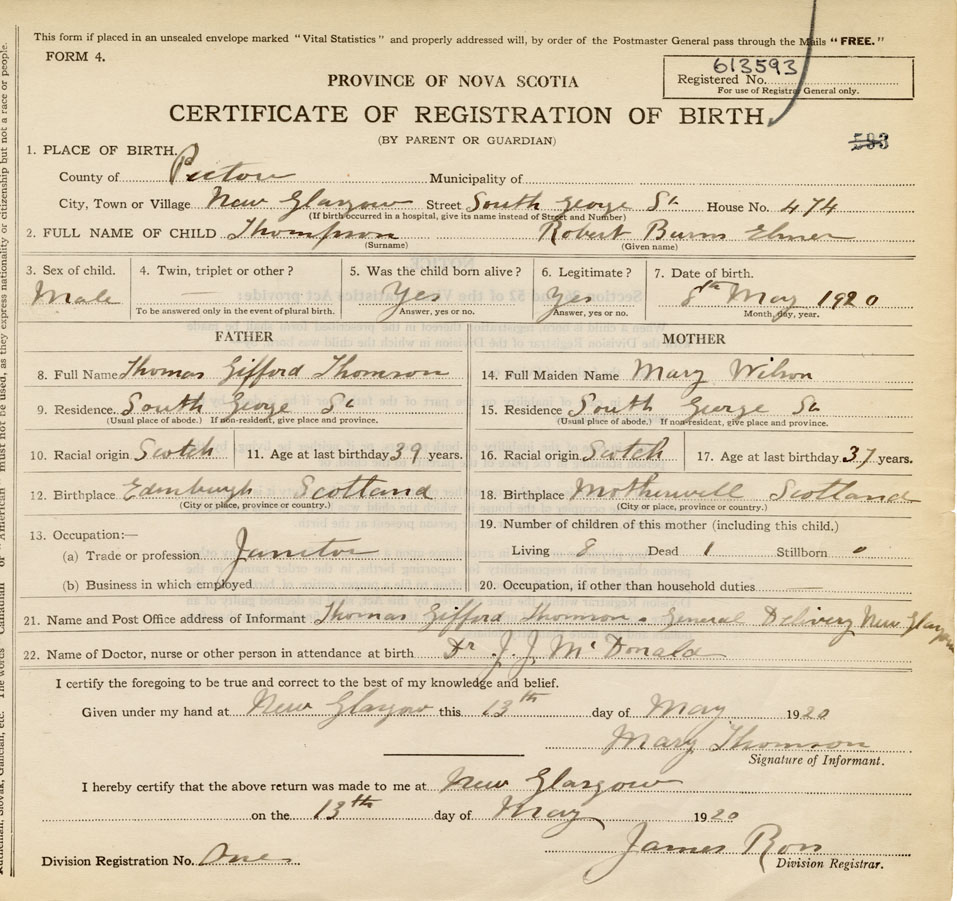 This form if placed in an unsealed envelope marked "Vital Statistics" and properly addressed will, by order of the Postmaster General pass through the Mails "FREE."
FORM 4.
613593
Registered No.
For use of Registrar General only.
PROVINCE OF NOVA SCOTIA
CERTIFICATE OF REGISTRATION OF BIRTH
(BY PARENT OR GUARDIAN)
583
1. PLACE OF BIRTH.
County of Pictou Municipality of
City, Town or Village New Glasgow Street South George St House No. 474
(If birth occurred in a hospital, give its name instead of Street and Number)
2. FULL NAME OF CHILD Thompson Robert Burns Elmer
(Surname) (Given name)
3. Sex of child. 4. Twin, triplet or other? 5. Was the child born alive? 6. Legitimate? 7. Date of birth.
Male Yes Yes 8th May 1920
To be answered only in the event of plural birth. Answer, yes or no. Answer, yes or no. Month, day, year.
FATHER MOTHER
8. Full Name Thomas Gifford Thomson 14. Full Maiden Name Mary Wilson
9. Residence. South George St 15. Residence South George St
(Usual place of abode.) If non-resident, give place and province. (Usual place of abode.) If non-resident, give place and province.
10. Racial origin Scotch 11. Age at last birthday 39 years. 16. Racial origin Scotch 17. Age at last birthday 37 years.
12. Birthplace Edinburgh Scotland 18. Birthplace Motherwell Scotland
(City or place, province or country.) (City or place, province or country.)
13. Occupation:— 19. Number of children of this mother (including this child.)
(a) Trade or profession Janitor Living 8 Dead 1 Stillborn 0
(b) Business in which employed 20. Occupation, if other than household duties
21. Name and Post Office address of Informant Thomas Gifford Thomson. General Delivery New Glasgow
22. Name of Doctor, nurse or other person in attendance at birth Dr J. J. McDonald
I certify the foregoing to be true and correct to the best of my knowledge and belief.
Given under my hand at New Glasgow this 13th day of May 1920
Mary Thomson
Signature of Informant.
I hereby certify that the above return was made to me at New Glasgow
on the 13th day of May 1920
James Ross
Division Registration No. One Division Registrar.